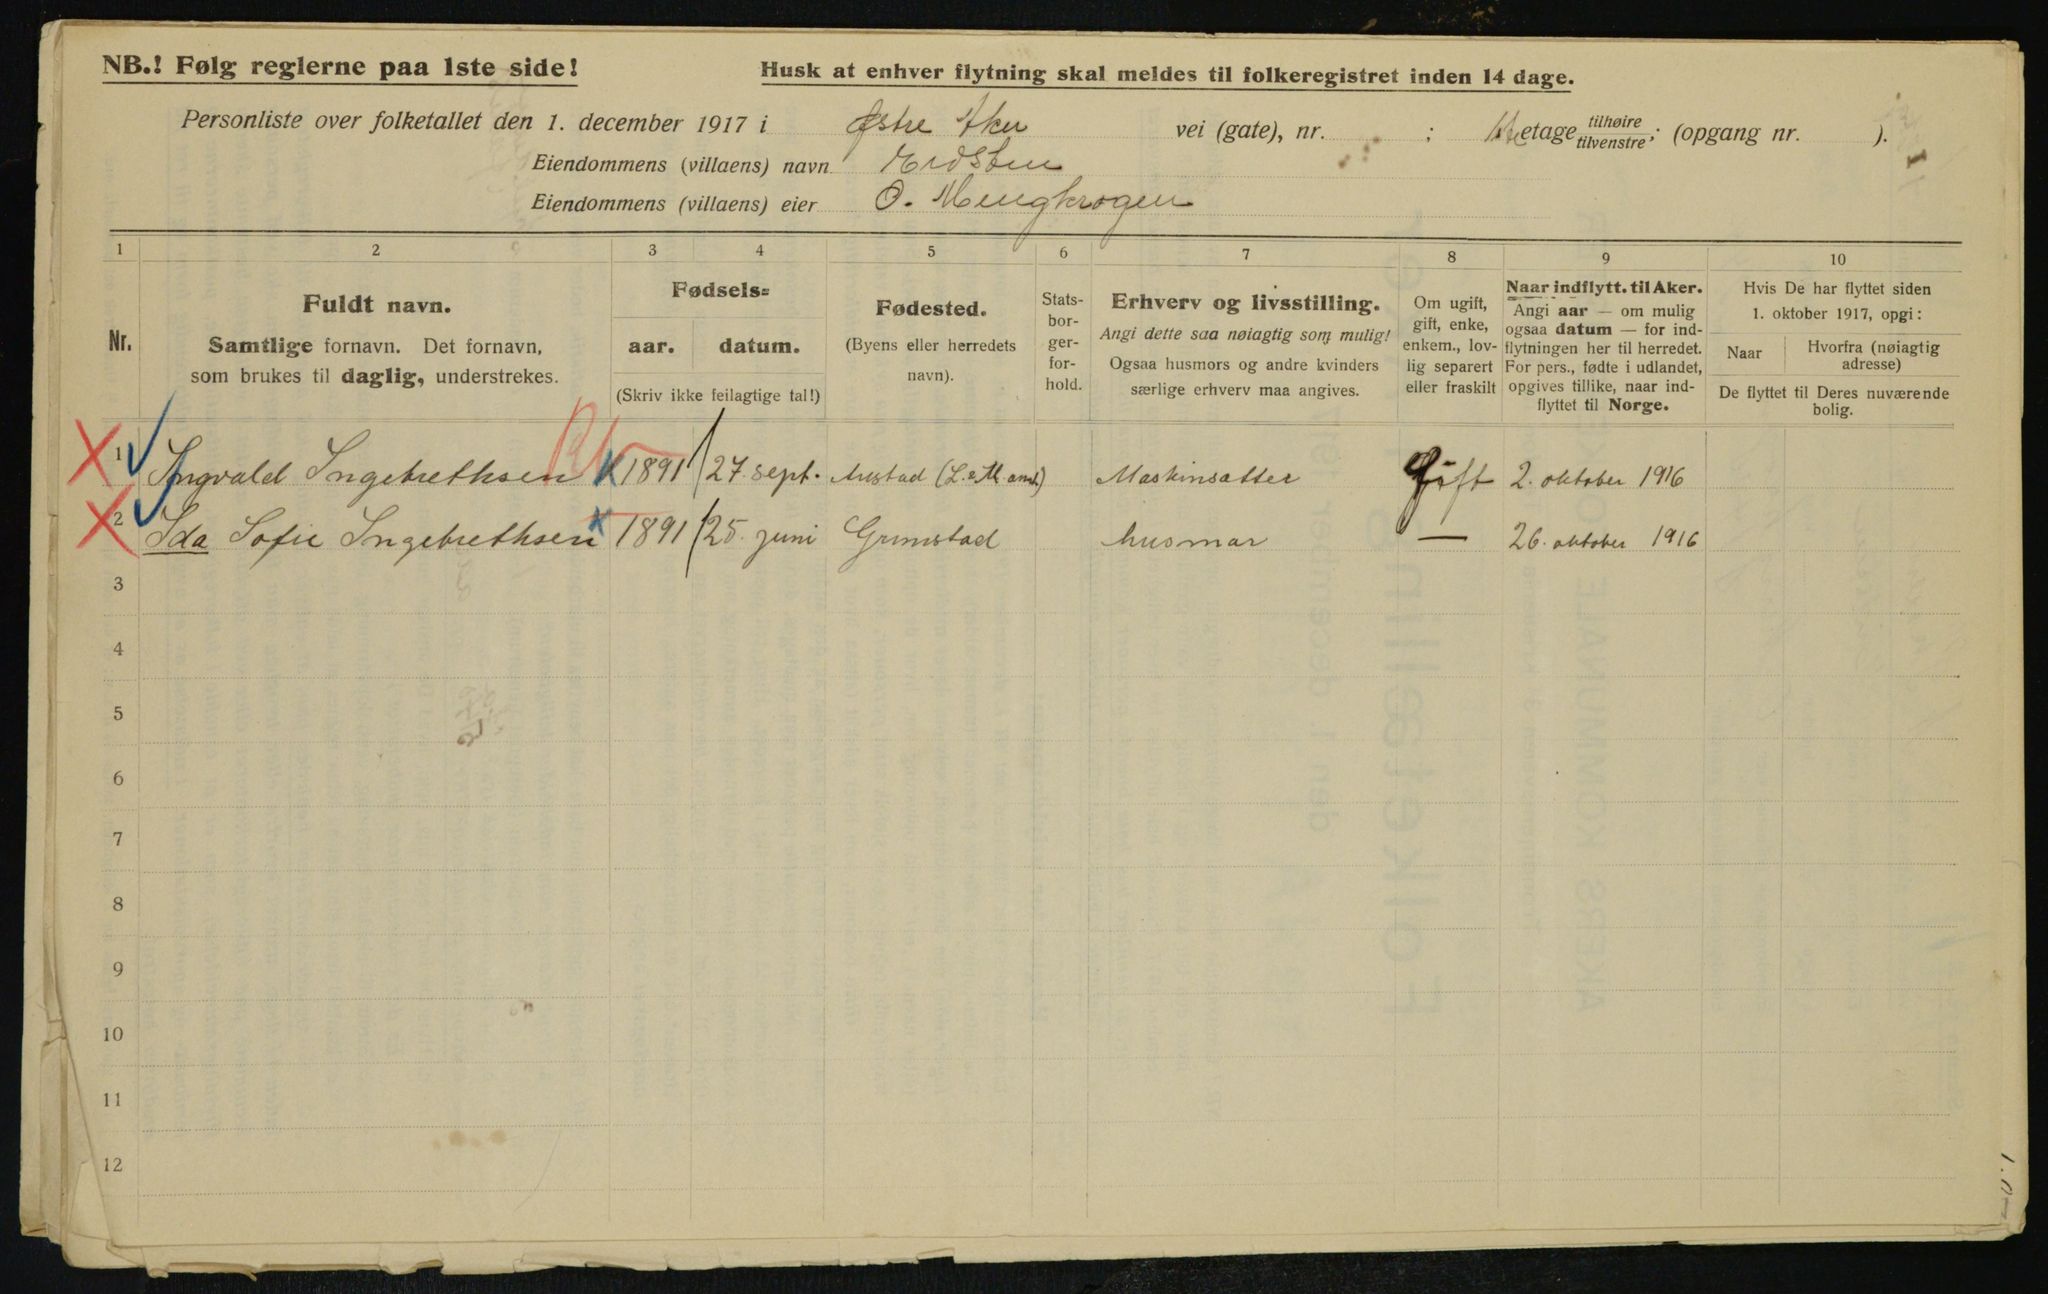 NB.! Følg reglerne paa 1ste side!
Husk at enhver flytning skal meldes til folkeregistret inden 14 dage.
Personliste over folketallet den 1. december 1917 i Østre Aker vei (gate), nr. : 1ste etage tilhøire tilvenstre; (opgang nr. ).
Eiendommens (villaens) navn
Eiendommens (villaens) eier O. Mengkrogen
1 2 3 4 5 6 7 8 9 10
Nr.
Fuldt navn.
Samtlige fornavn. Det fornavn,
som brukes til daglig, understrekes.
Fødsels=
aar. datum.
(Skriv ikke feilagtige tal!)
Fødested.
(Byens eller herredets
navn).
Stats-
bor-
ger-
for-
hold.
Erhverv og livsstilling.
Angi dette saa nøiagtig som mulig!
Ogsaa husmors og andre kvinders
særlige erhverv maa angives.
Om ugift,
gift, enke,
enkem., lov-
lig separert
eller fraskilt
Naar indflytt. til Aker.
Angi aar — om mulig
ogsaa datum — for ind-
flytningen her til herredet.
For pers., fødte i udlandet,
opgives tillike, naar ind-
flyttet til Norge.
Hvis De har flyttet siden
1. oktober 1917, opgi:
Naar
Hvorfra (nøiagtig
adresse)
De flyttet til Deres nuværende
bolig.
1 Ingvald Ingebrethsen 1891 27. sept. (L. & M. amt) Maskinsætter Gift 2. oktober 1916
2 Ida Sofie Ingebrethsen 1891 25. juni Grimstad husmor — 26. oktober 1916
3
4
5
6
7
8
9
10
11
12